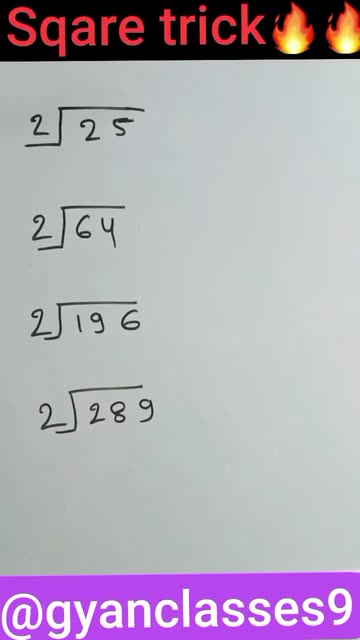 Sqare trick🔥🔥
2√25
2√64
2√196
2√289
@gyanclasses9